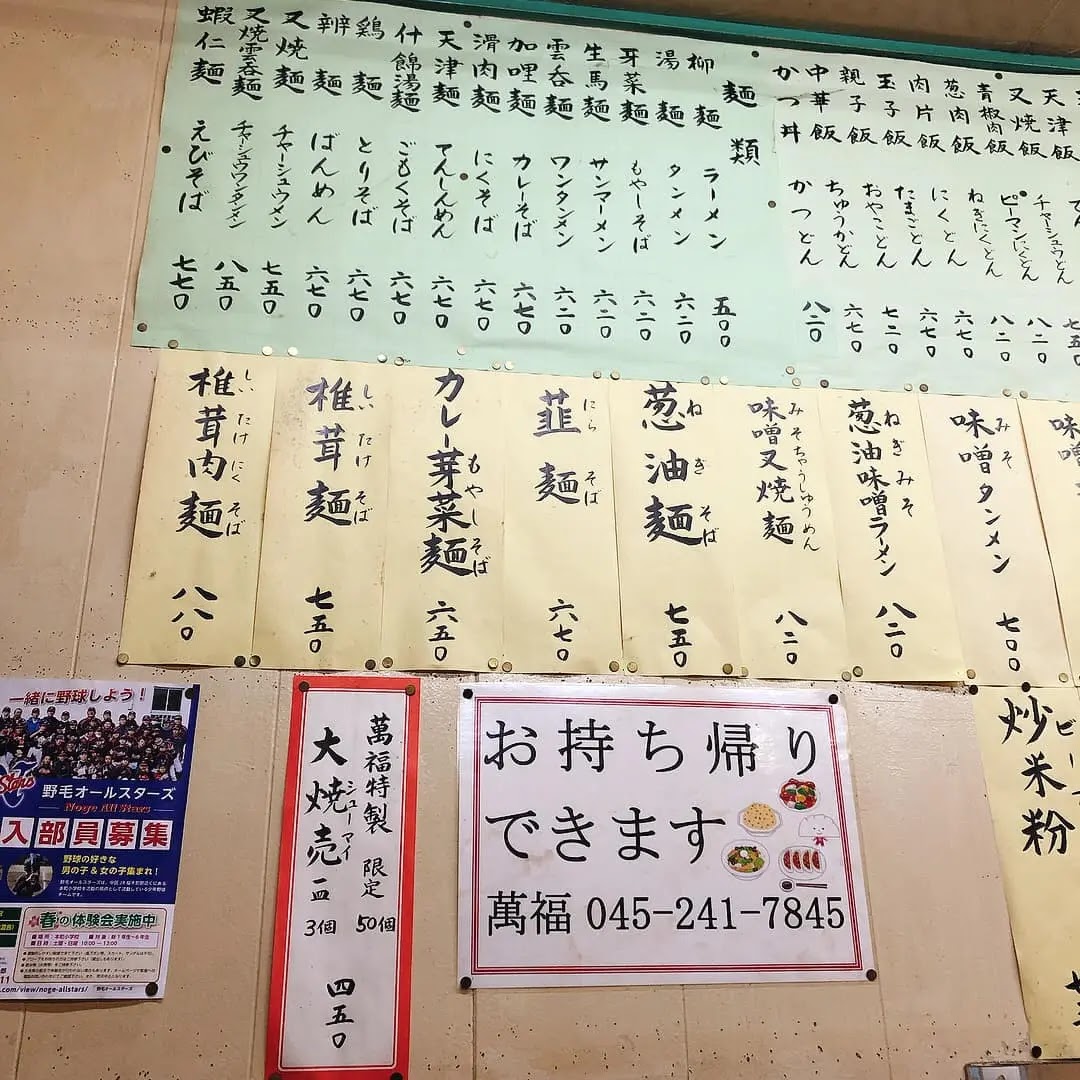 天津飯 チャーシュウどん
叉焼飯 ピーマンにくどん 八二〇
青椒肉飯 ねぎにくどん 八二〇
葱肉飯 にくどん 六七〇
肉片飯 たまごどん 六七〇
玉子飯 おやこどん 七二〇
親子飯 ちゅうかどん 六七〇
中華飯
かつ丼 かつどん 八二〇
麺類
柳麺 ラーメン 五〇〇
湯麺 タンメン 六二〇
牙菜麺 もやしそば 六二〇
生馬麺 サンマーメン 六二〇
雲呑麺 ワンタンメン 六二〇
加哩麺 カレーそば 六七〇
滑肉麺 にくそば 六七〇
天津麺 てんしんめん 六七〇
什錦湯麺 ごもくそば 六七〇
鶏麺 とりそば 六七〇
辨麺 ばんめん 六七〇
叉焼麺 チャーシュウメン 七五〇
叉焼雲呑麺 チャーシュウワンタンメン 八五〇
蝦仁麺 えびそば 七七〇
味噌
味噌タンメン みそ 七〇〇
葱油味噌ラーメン ねぎみそ 八二〇
味噌叉焼麺 みそちゃうしゅうめん 八二〇
葱油麺 ねぎそば 七五〇
韮麺 にらそば 六七〇
カレー芽菜麺 もやしそば 六五〇
椎茸麺 しいたけそば 七五〇
椎茸肉麺 しいたけにくそば 八八〇
炒米粉
お持ち帰り
できます
萬福 045-241-7845
萬福特製 限定 50個
大焼売 シューマイ 一皿 3個 四五〇
一緒に野球しよう！
Stars
野毛オールスターズ
Noge All Stars
入部員募集
野球の好きな
男の子&女の子集まれ！
春の体験会実施中
■場所：本町小学校 ■対象：新1年生〜6年生
■日時：土曜・日曜 10:00〜13:00
.com/view/noge-allstars/ 野毛オールスターズ